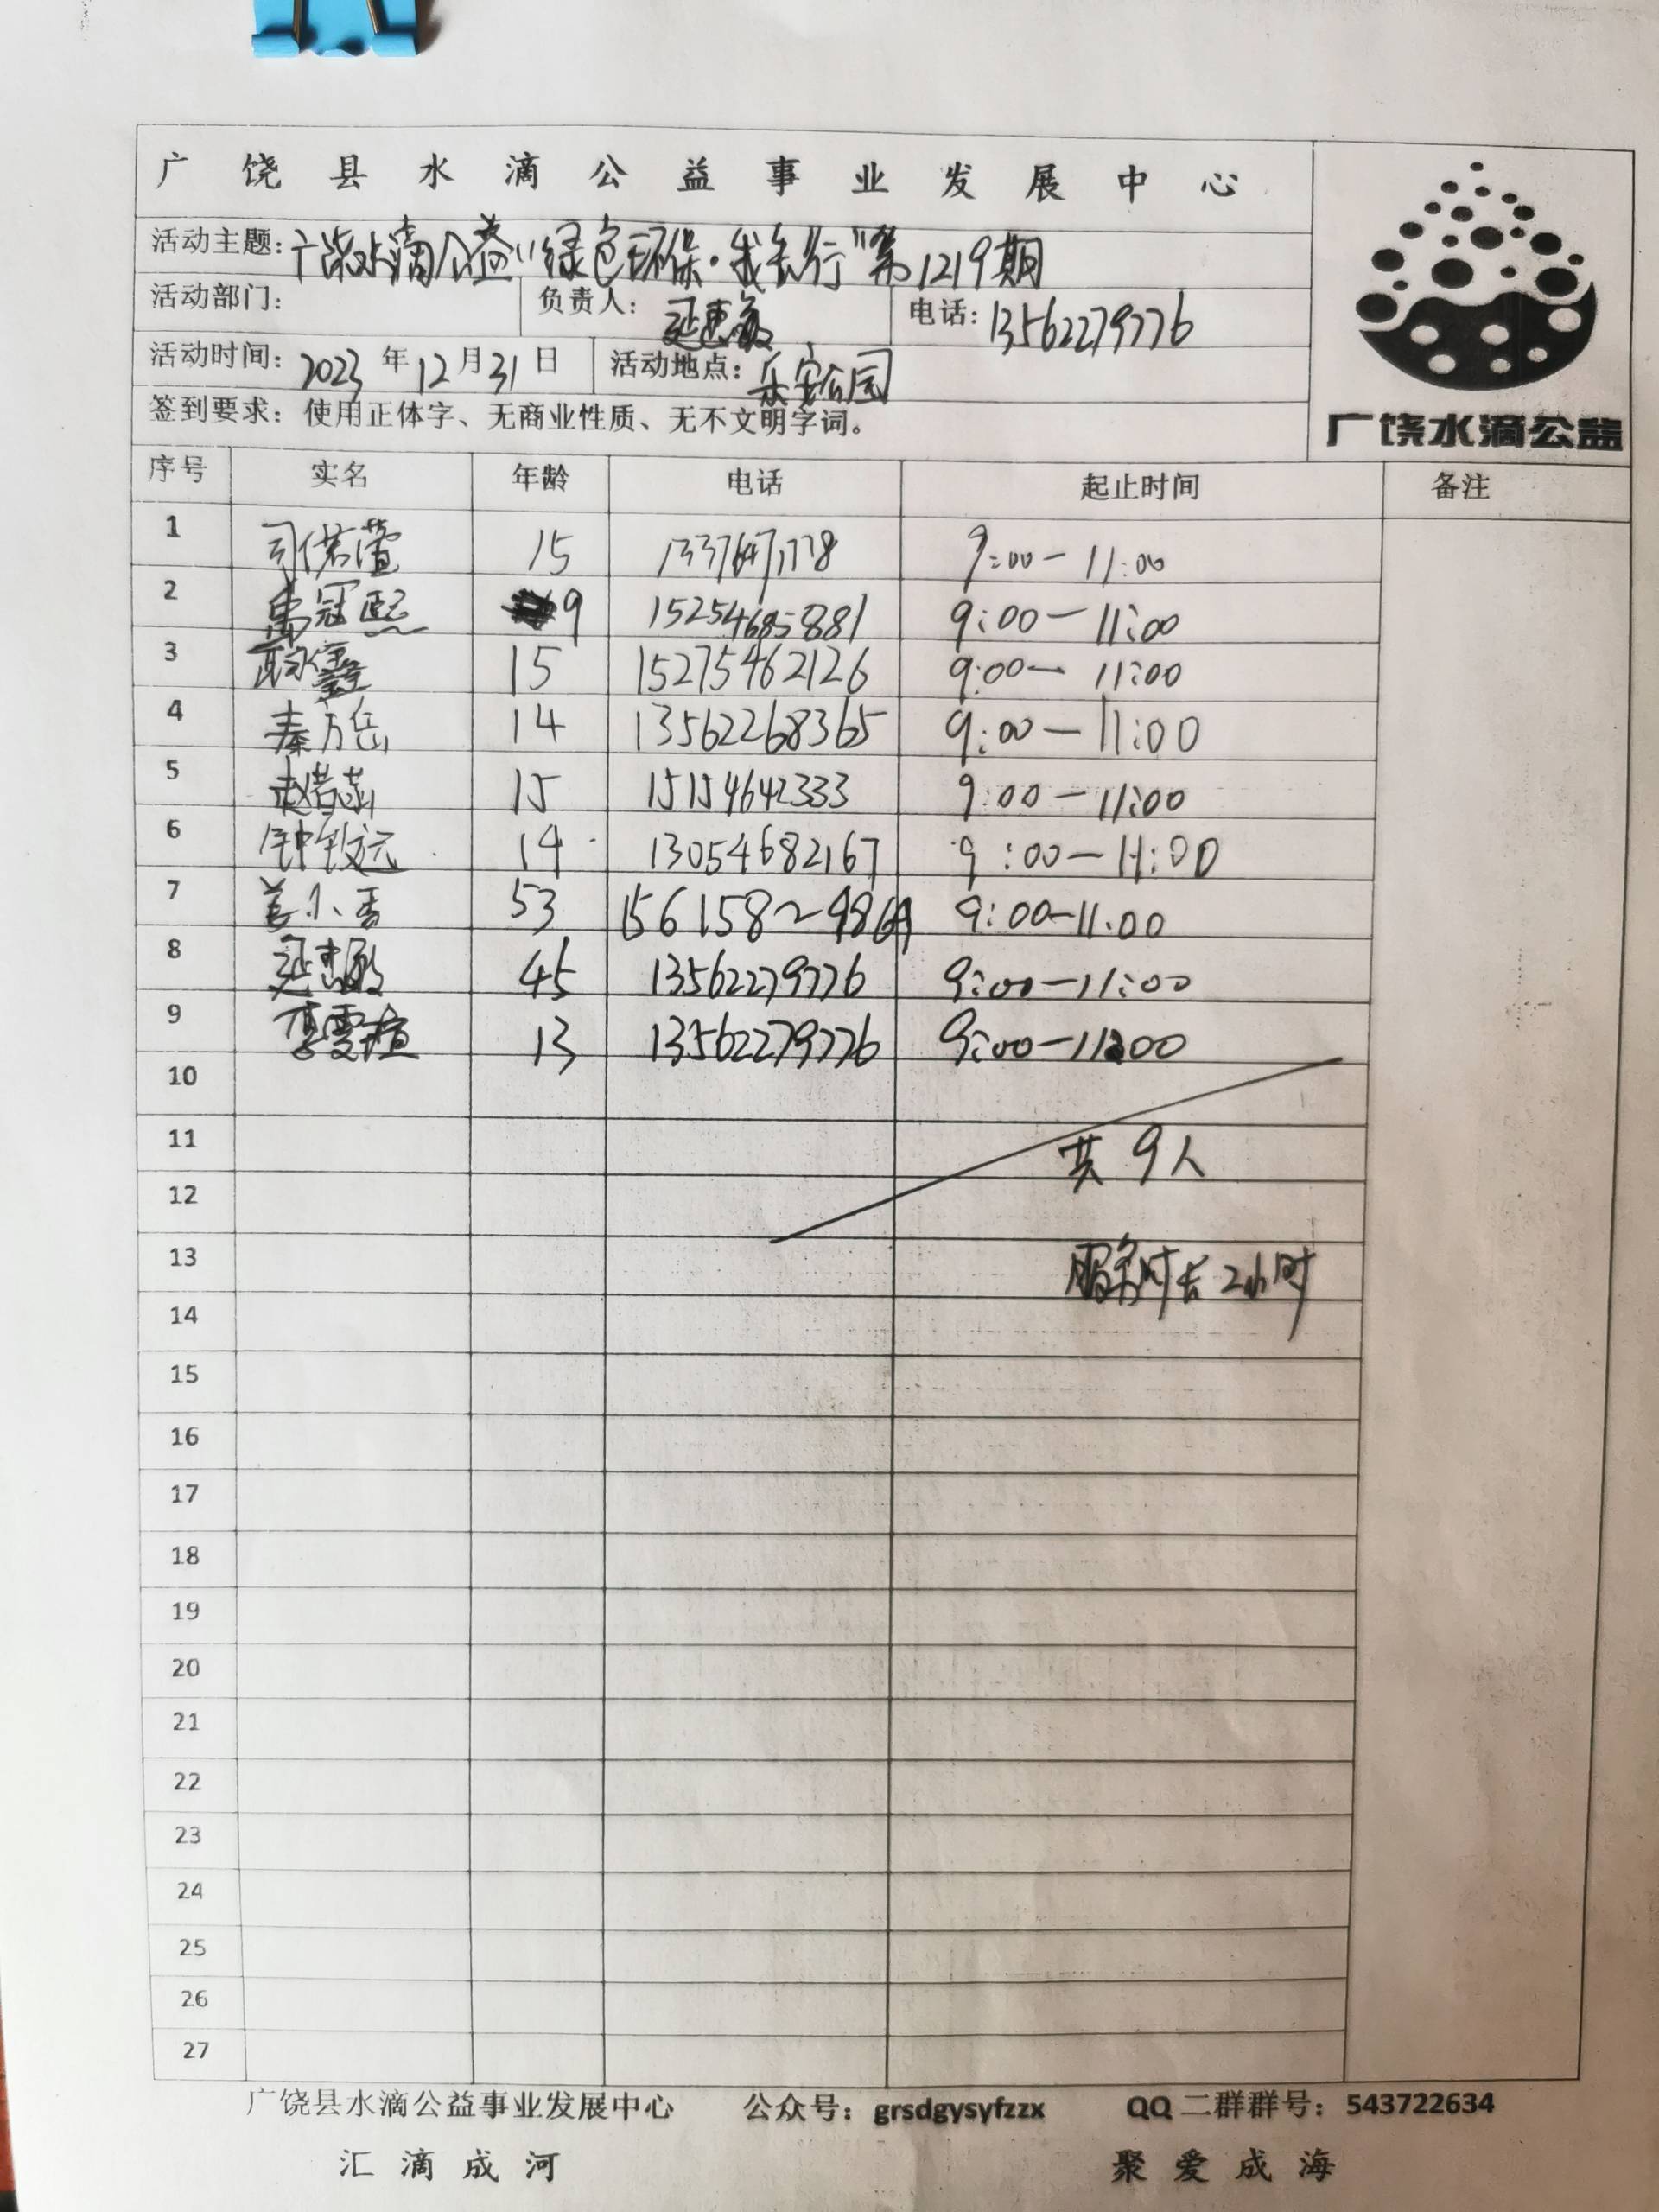 广饶县水滴公益事业发展中心
活动主题：广饶水滴公益"绿色环保·我先行"第1219期
活动部门： 负责人：延惠敏 电话：13562279776
活动时间：2023年12月31日 活动地点：乐安公园
签到要求：使用正体字、无商业性质、无不文明字词。
广饶水滴公益
序号 实名 年龄 电话 起止时间 备注
1 司偌萱 15 13376471778 9:00-11:00
2 冠熙 9 15254685881 9:00-11:00
3 鑫 15 15275462126 9:00-11:00
4 秦方岳 14 13562268365 9:00-11:00
5 赵若菡 15 15154642333 9:00-11:00
6 钟 远 14 13054682167 9:00-11:00
7 姜小香 53 9:00-11.00
8 延惠敏 45 13562279776 9:00-11:00
9 李雯 13 13562279776 9:00-11:00
10
11 共9人
12
13 服务时长2小时
14
15
16
17
18
19
20
21
22
23
24
25
26
27
广饶县水滴公益事业发展中心 公众号：grsdgysyfzzx QQ二群群号：543722634
汇滴成河 聚爱成海